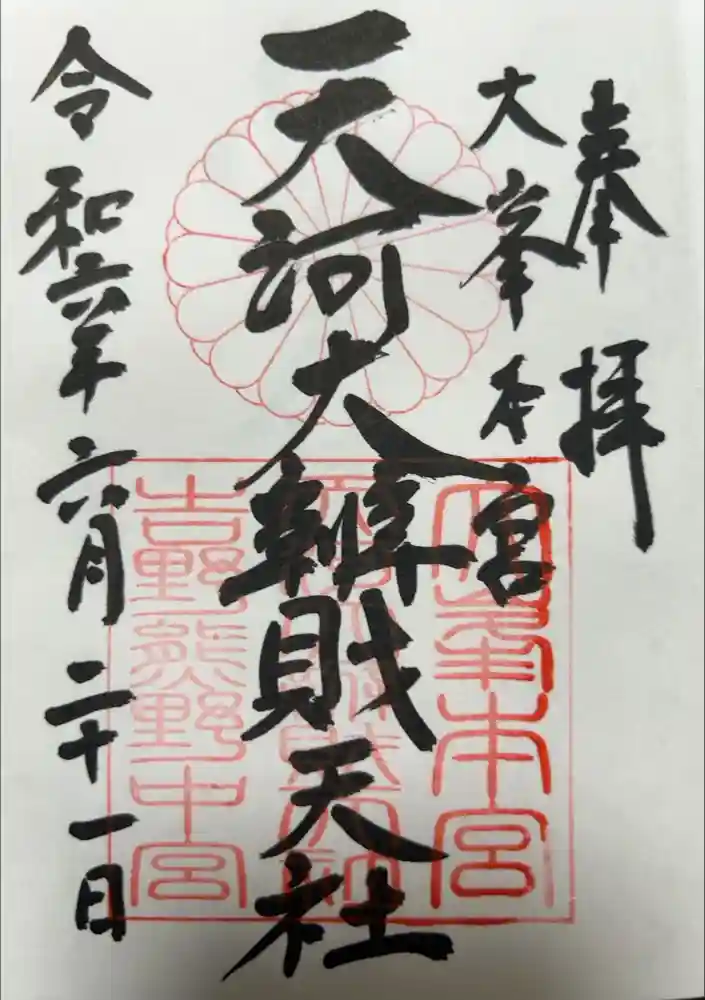 奉拝
大峯本宮
天河大辨財天社
令和六年六月二十一日
大峯本宮
天河大辨財天社
吉野熊野中宮